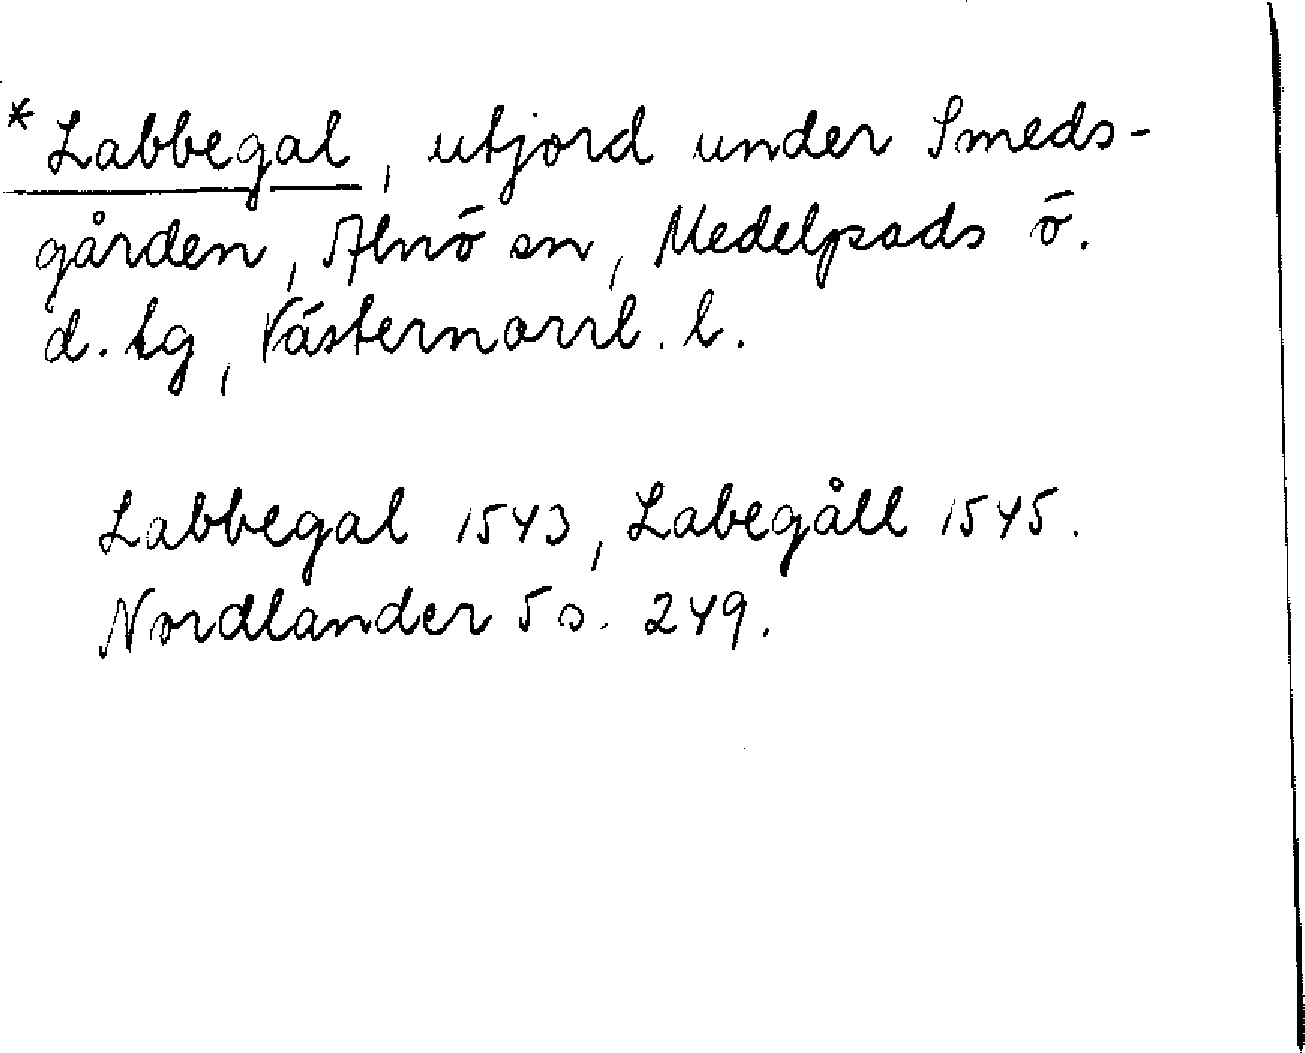 *Labbegal, utjord under Smeds-
gården, Alnö sn, Medelpads ö.
d. tg, Västernorrl. l.
Labbegal 1543, Labegåll 1545.
Nordlander 5 s. 249.